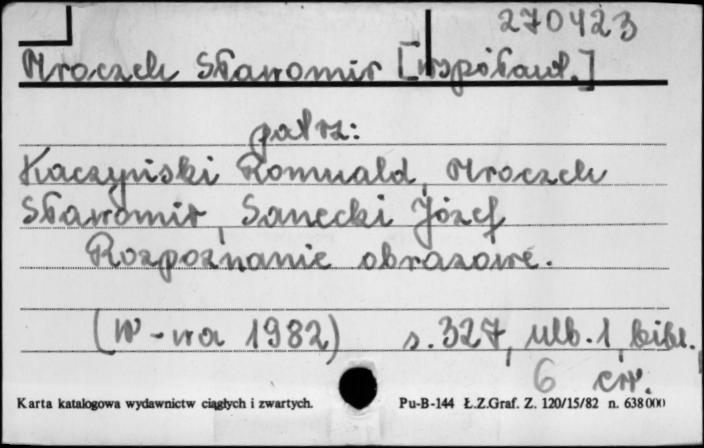 270423
Mroczek Sławomir [współaut.]
patrz:
Kaczyński Romuald, Mroczek
Sławomir, Sanecki Józef
Rozpoznanie obrazowe.
(W-wa 1982) s. 327, nlb. 1, bibl.
6 err.
Karta katalogowa wydawnictw ciągłych i zwartych. Pu-B-144 Ł.Z.Graf. Z. 120/15/82 n. 638000